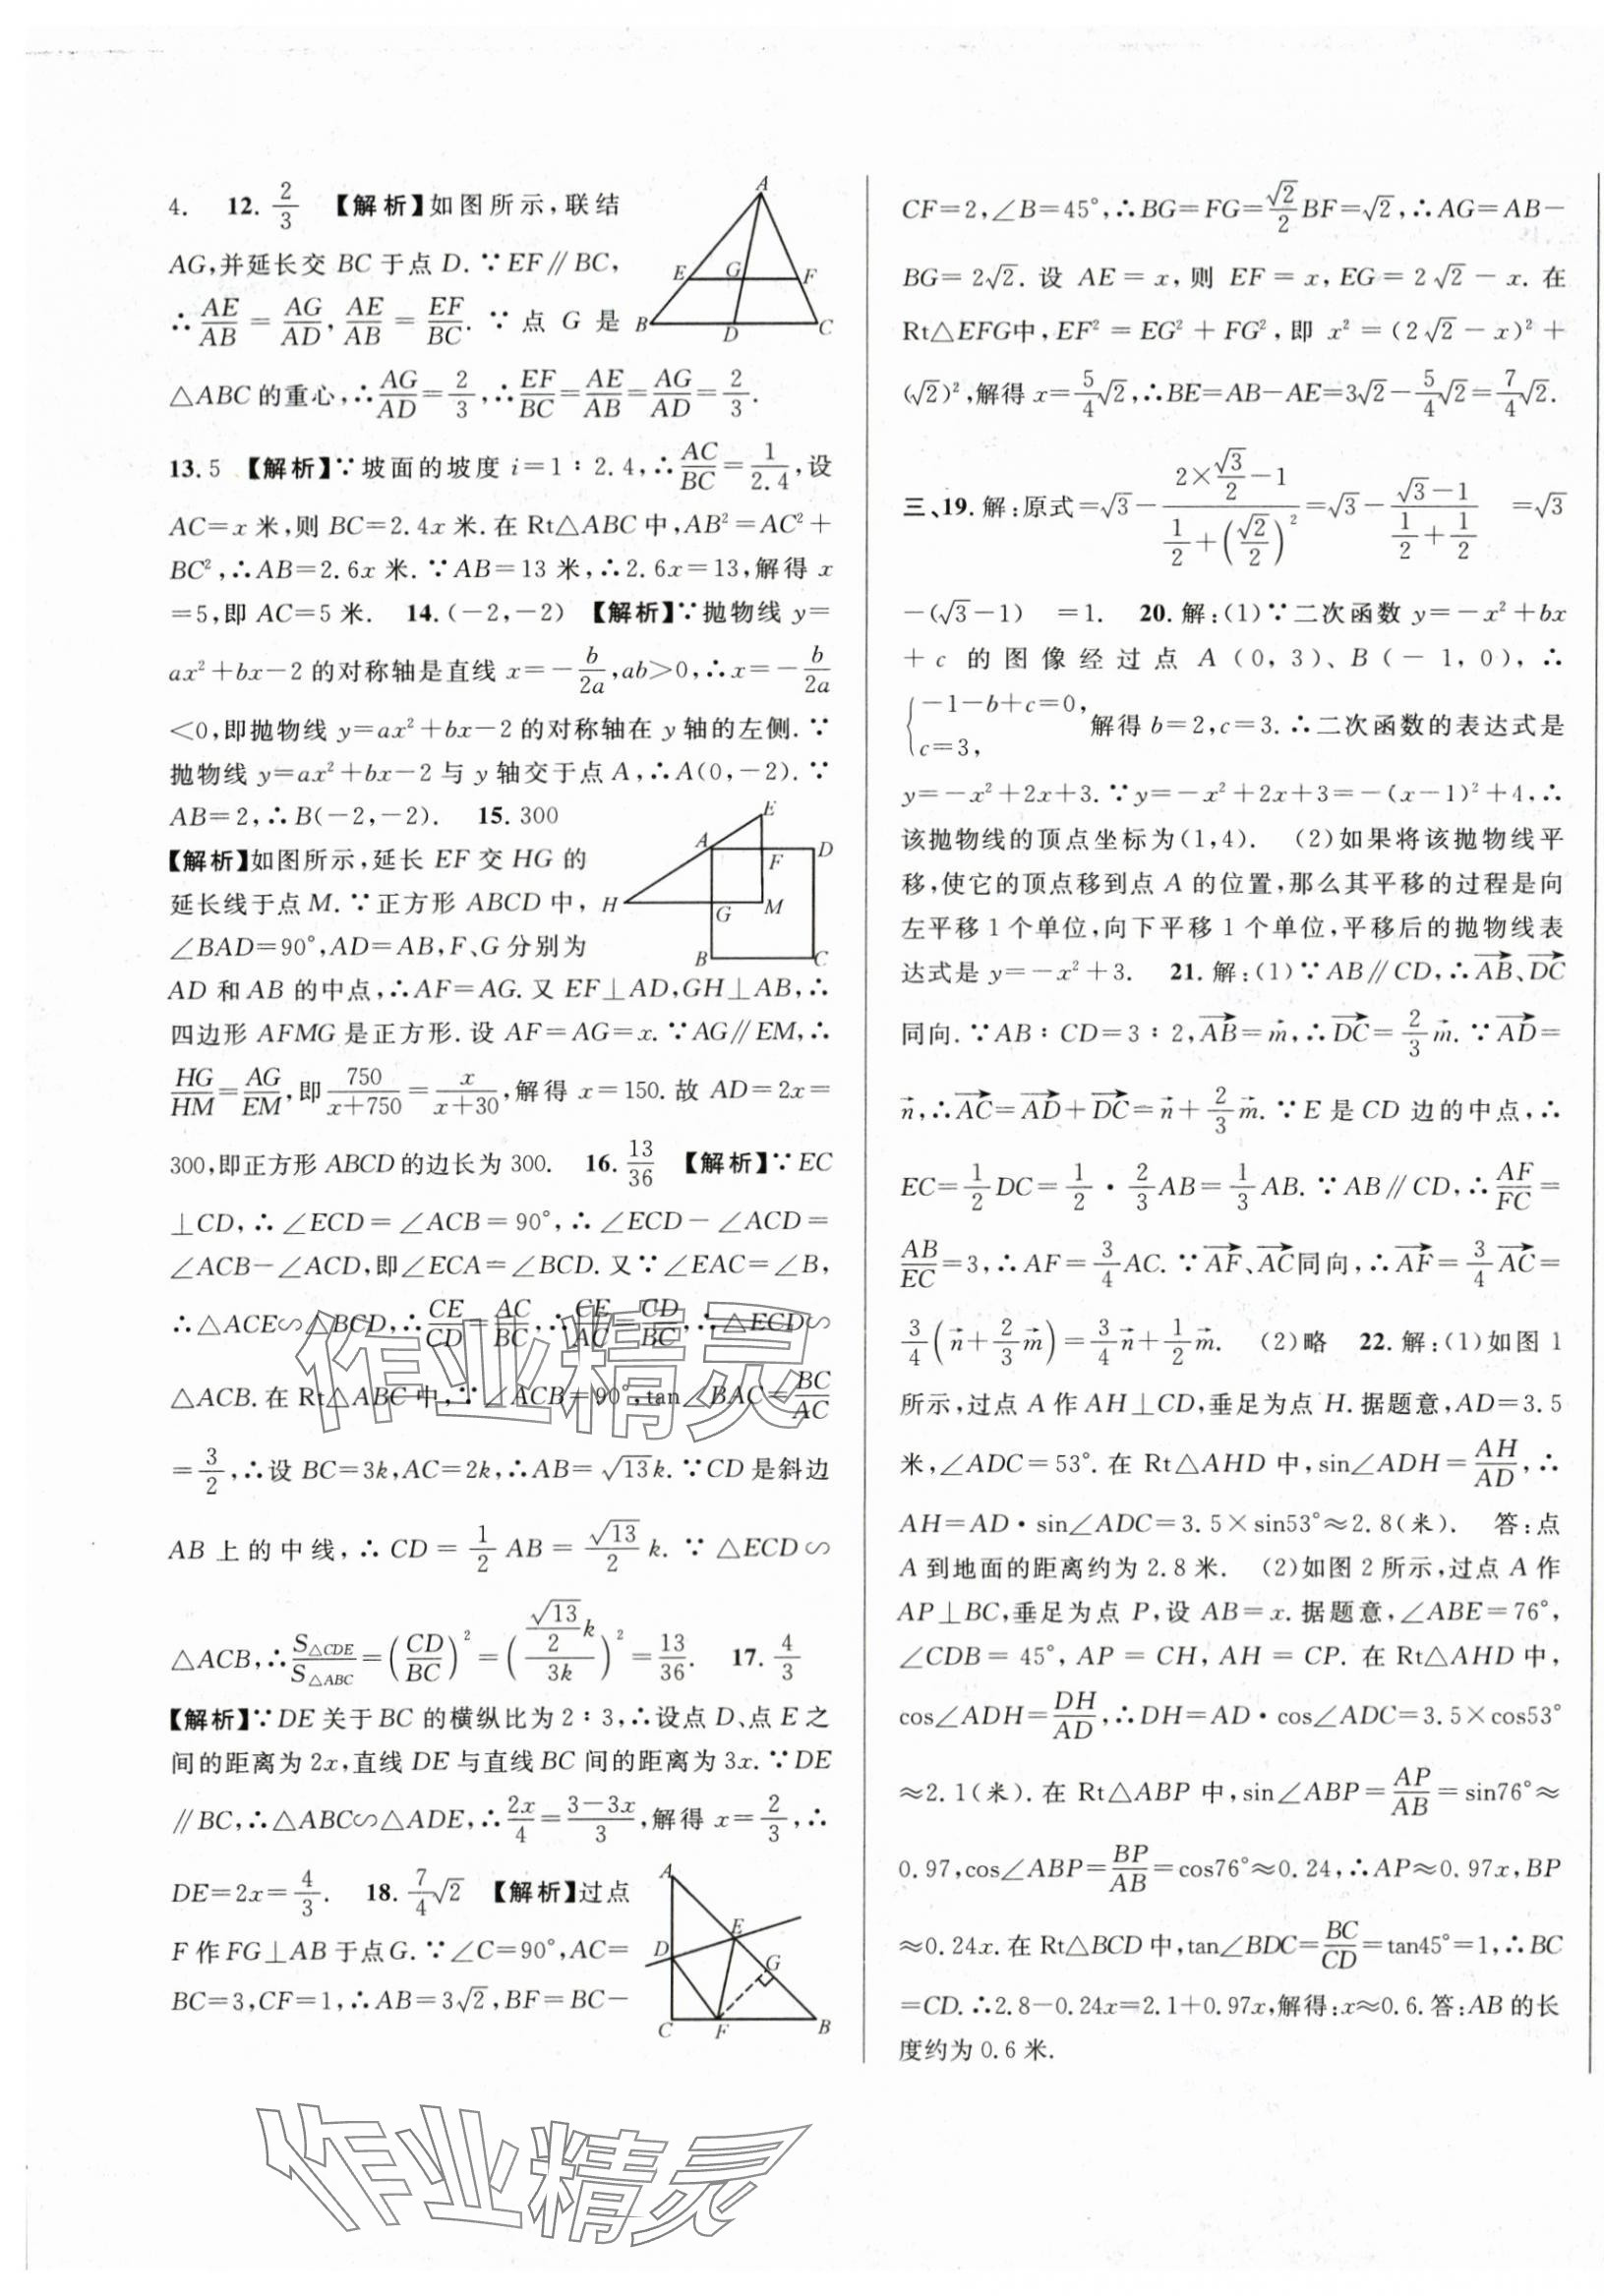 4. 12. 2/3 【解析】如图所示,联结
AG,并延长交 BC 于点 D.∵EF∥BC,
∴AE/AB=AG/AD,AE/AB=EF/BC.∵点 G 是
△ABC 的重心,∴AG/AD=2/3,∴EF/BC=AE/AB=AG/AD=2/3.
A
E G F
B D C
13.5 【解析】∵坡面的坡度 i=1∶2.4,∴AC/BC=1/2.4,设
AC=x 米,则 BC=2.4x 米.在 Rt△ABC 中,AB²=AC²+
BC²,∴AB=2.6x 米.∵AB=13 米,∴2.6x=13,解得 x
=5,即 AC=5 米. 14.(-2,-2) 【解析】∵抛物线 y=
ax²+bx-2 的对称轴是直线 x=-b/2a,ab>0,∴x=-b/2a
<0,即抛物线 y=ax²+bx-2 的对称轴在 y 轴的左侧.∵
抛物线 y=ax²+bx-2 与 y 轴交于点 A,∴A(0,-2).∵
AB=2,∴B(-2,-2). 15.300
【解析】如图所示,延长 EF 交 HG 的
延长线于点 M.∵正方形 ABCD 中,
∠BAD=90°,AD=AB,F、G 分别为
E
A D
F
H G M
B C
AD 和 AB 的中点,∴AF=AG.又 EF⊥AD,GH⊥AB,∴
四边形 AFMG 是正方形.设 AF=AG=x.∵AG∥EM,∴
HG/HM=AG/EM,即 750/(x+750)=x/(x+30),解得 x=150.故 AD=2x=
300,即正方形 ABCD 的边长为 300. 16. 13/36 【解析】∵EC
⊥CD,∴∠ECD=∠ACB=90°,∴∠ECD-∠ACD=
∠ACB-∠ACD,即∠ECA=∠BCD.又∵∠EAC=∠B,
∴△ACE∽△BCD,∴CE/CD=AC/BC,∴CE/AC=CD/BC,∴△ECD∽
△ACB.在 Rt△ABC 中,∵∠ACB=90°,tan∠BAC=BC/AC
=3/2,∴设 BC=3k,AC=2k,∴AB=√13k.∵CD 是斜边
AB 上的中线,∴CD=1/2 AB=√13/2 k.∵△ECD∽
△ACB,∴S△CDE/S△ABC=(CD/BC)²=((√13/2 k)/3k)²=13/36. 17. 4/3
【解析】∵DE 关于 BC 的横纵比为 2∶3,∴设点 D、点 E 之
间的距离为 2x,直线 DE 与直线 BC 间的距离为 3x.∵DE
∥BC,∴△ABC∽△ADE,∴2x/4=(3-3x)/3,解得 x=2/3,∴
DE=2x=4/3. 18. 7/4√2 【解析】过点
F 作 FG⊥AB 于点 G.∵∠C=90°,AC=
BC=3,CF=1,∴AB=3√2,BF=BC-
A
E
D
G
C F B
CF=2,∠B=45°,∴BG=FG=√2/2 BF=√2,∴AG=AB-
BG=2√2.设 AE=x,则 EF=x,EG=2√2-x.在
Rt△EFG中,EF²=EG²+FG²,即 x²=(2√2-x)²+
(√2)²,解得 x=5/4√2,∴BE=AB-AE=3√2-5/4√2=7/4√2.
三、19.解:原式=√3-(2×√3/2-1)/(1/2+(√2/2)²)=√3-(√3-1)/(1/2+1/2) =√3
-(√3-1) =1. 20.解:(1)∵二次函数 y=-x²+bx
+c 的图像经过点 A(0,3)、B(-1,0),∴
{-1-b+c=0, c=3, 解得 b=2,c=3.∴二次函数的表达式是
y=-x²+2x+3.∵y=-x²+2x+3=-(x-1)²+4,∴
该抛物线的顶点坐标为(1,4). (2)如果将该抛物线平
移,使它的顶点移到点 A 的位置,那么其平移的过程是向
左平移 1 个单位,向下平移 1 个单位,平移后的抛物线表
达式是 y=-x²+3. 21.解:(1)∵AB∥CD,∴AB→、DC→
同向.∵AB∶CD=3∶2,AB→=m→,∴DC→=2/3 m→.∵AD→=
n→,∴AC→=AD→+DC→=n→+2/3 m→.∵E 是 CD 边的中点,∴
EC=1/2 DC=1/2·2/3 AB=1/3 AB.∵AB∥CD,∴AF/FC=
AB/EC=3,∴AF=3/4 AC.∵AF→、AC→同向,∴AF→=3/4 AC→=
3/4(n→+2/3 m→)=3/4 n→+1/2 m→. (2)略 22.解:(1)如图 1
所示,过点 A 作 AH⊥CD,垂足为点 H.据题意,AD=3.5
米,∠ADC=53°.在 Rt△AHD 中,sin∠ADH=AH/AD,∴
AH=AD·sin∠ADC=3.5×sin53°≈2.8(米). 答:点
A 到地面的距离约为 2.8 米. (2)如图 2 所示,过点 A 作
AP⊥BC,垂足为点 P,设 AB=x.据题意,∠ABE=76°,
∠CDB=45°,AP=CH,AH=CP.在 Rt△AHD 中,
cos∠ADH=DH/AD,∴DH=AD·cos∠ADC=3.5×cos53°
≈2.1(米).在 Rt△ABP 中,sin∠ABP=AP/AB=sin76°≈
0.97,cos∠ABP=BP/AB=cos76°≈0.24,∴AP≈0.97x,BP
≈0.24x.在 Rt△BCD 中,tan∠BDC=BC/CD=tan45°=1,∴BC
=CD.∴2.8-0.24x=2.1+0.97x,解得:x≈0.6.答:AB 的长
度约为 0.6 米.
作业精灵
作业精灵